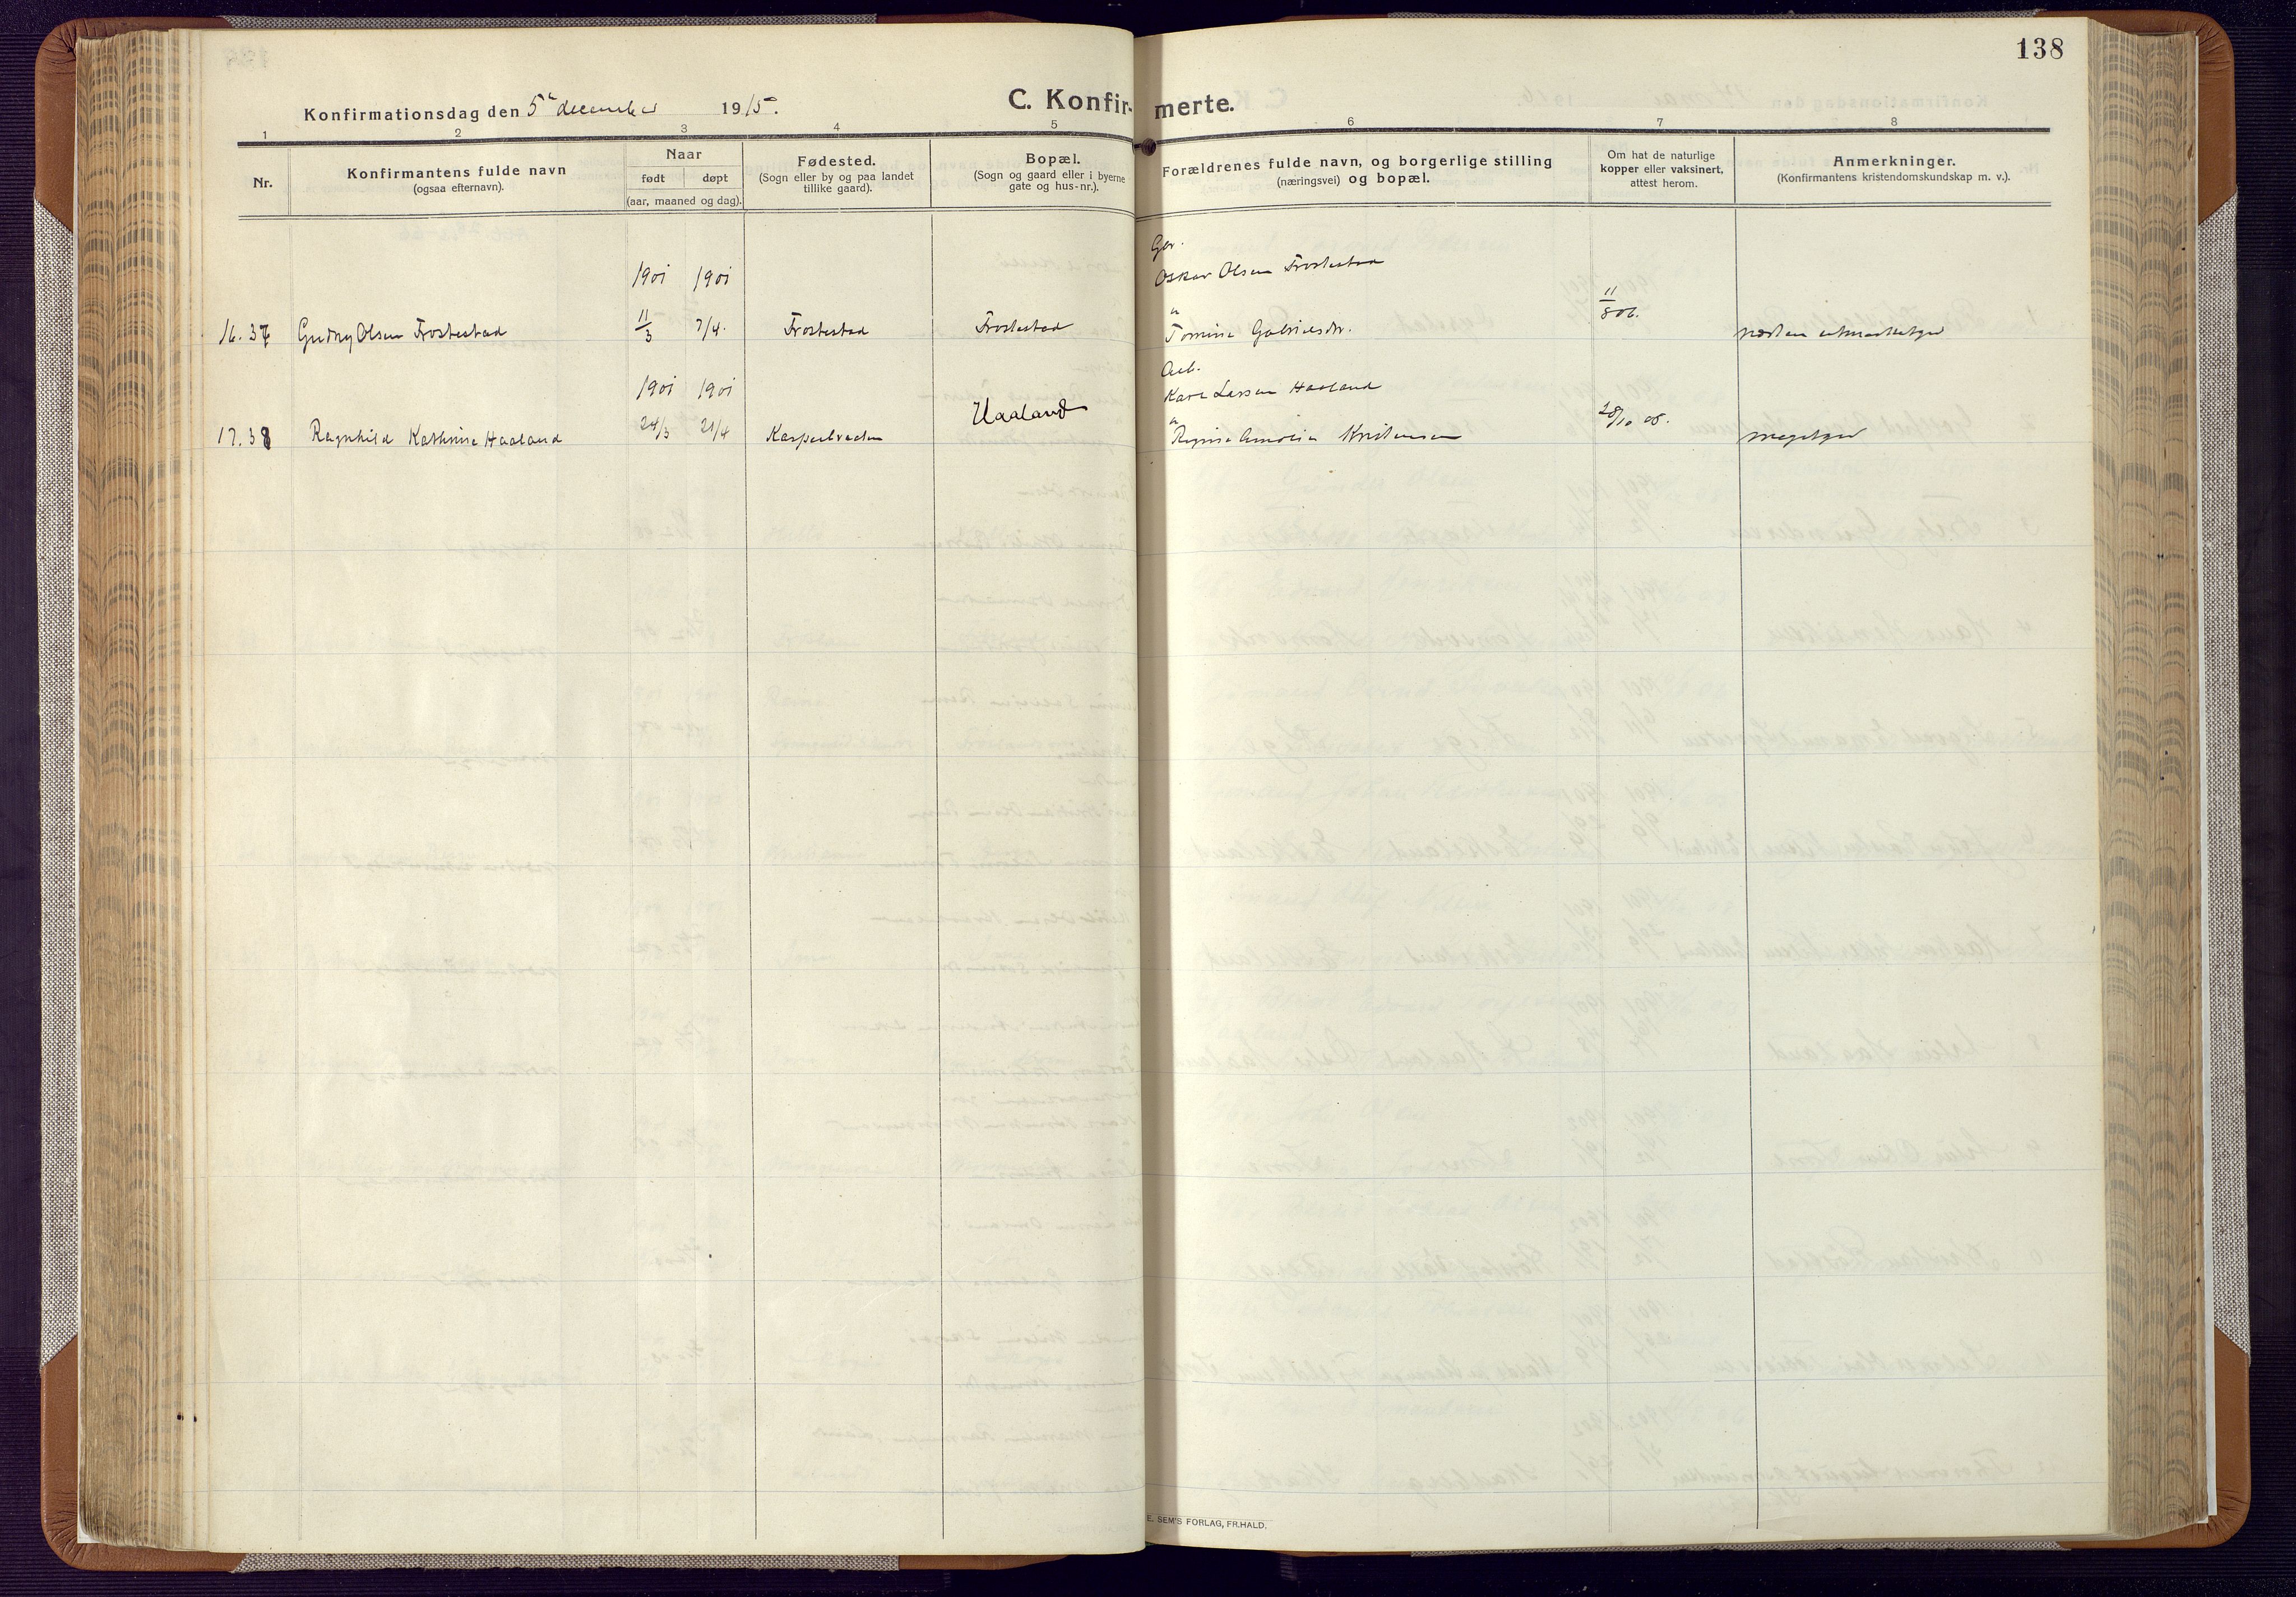 138
Konfirmationsdag den 5te december 1915.
C. Konfirmerte.
1 2 3 4 5 6 7 8
Nr.
Konfirmantens fulde navn
(ogsaa efternavn).
Naar
født døpt
(aar, maaned og dag).
Fødested.
(Sogn eller by og paa landet
tillike gaard).
Bopæl.
(Sogn og gaard eller i byerne
gate og hus-nr.).
Forældrenes fulde navn, og borgerlige stilling
(næringsvei) og bopæl.
Om hat de naturlige
kopper eller vaksinert,
attest herom.
Anmerkninger.
(Konfirmantens kristendomskundskap m. v.).
Gbr.
1901 1901 Oskar Olsen Frostestad
16. 37 Gudny Olsen Frostestad 11/3 7/4. Frostestad Frostestad Tomine Gabrielsdtr. 11/8 06. næsten utmerketgod
Arb.
1901 1901 Karl Larsen Haaland
17. 38 Ragnhild Kathrine Haaland 24/3 21/4 Haaland Regine Amalia Kristensen 28/10 05. megetgod
E. SEM'S FORLAG, FR.HALD.